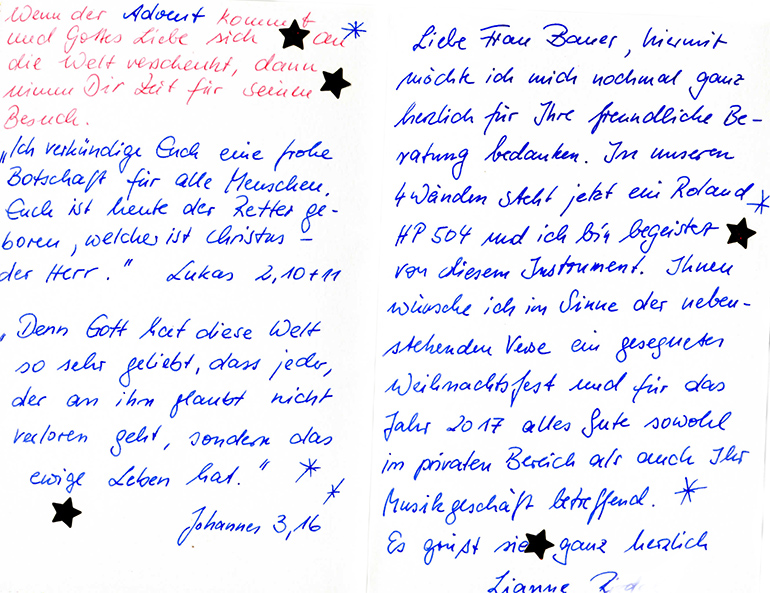 Wenn der Advent kommt
und Gottes Liebe sich an
die Welt verschenkt, dann
nimm Dir Zeit für seinen
Besuch.
„Ich verkündige Euch eine frohe
Botschaft für alle Menschen.
Euch ist heute der Retter ge-
boren, welcher ist Christus –
der Herr.“ Lukas 2,10+11
„Denn Gott hat diese Welt
so sehr geliebt, dass jeder,
der an ihn glaubt nicht
verloren geht, sondern das
ewige Leben hat.“
Johannes 3,16
Liebe Frau Bauer, hiermit
möchte ich mich nochmal ganz
herzlich für Ihre freundliche Be-
ratung bedanken. In unseren
4 Wänden steht jetzt ein Roland
HP 504 und ich bin begeistert
von diesem Instrument. Ihnen
wünsche ich im Sinne der neben-
stehenden Verse ein gesegnetes
Weihnachtsfest und für das
Jahr 2017 alles Gute sowohl
im privaten Bereich als auch Ihr
Musikgeschäft betreffend.
Es grüßt sie ganz herzlich
Lianne